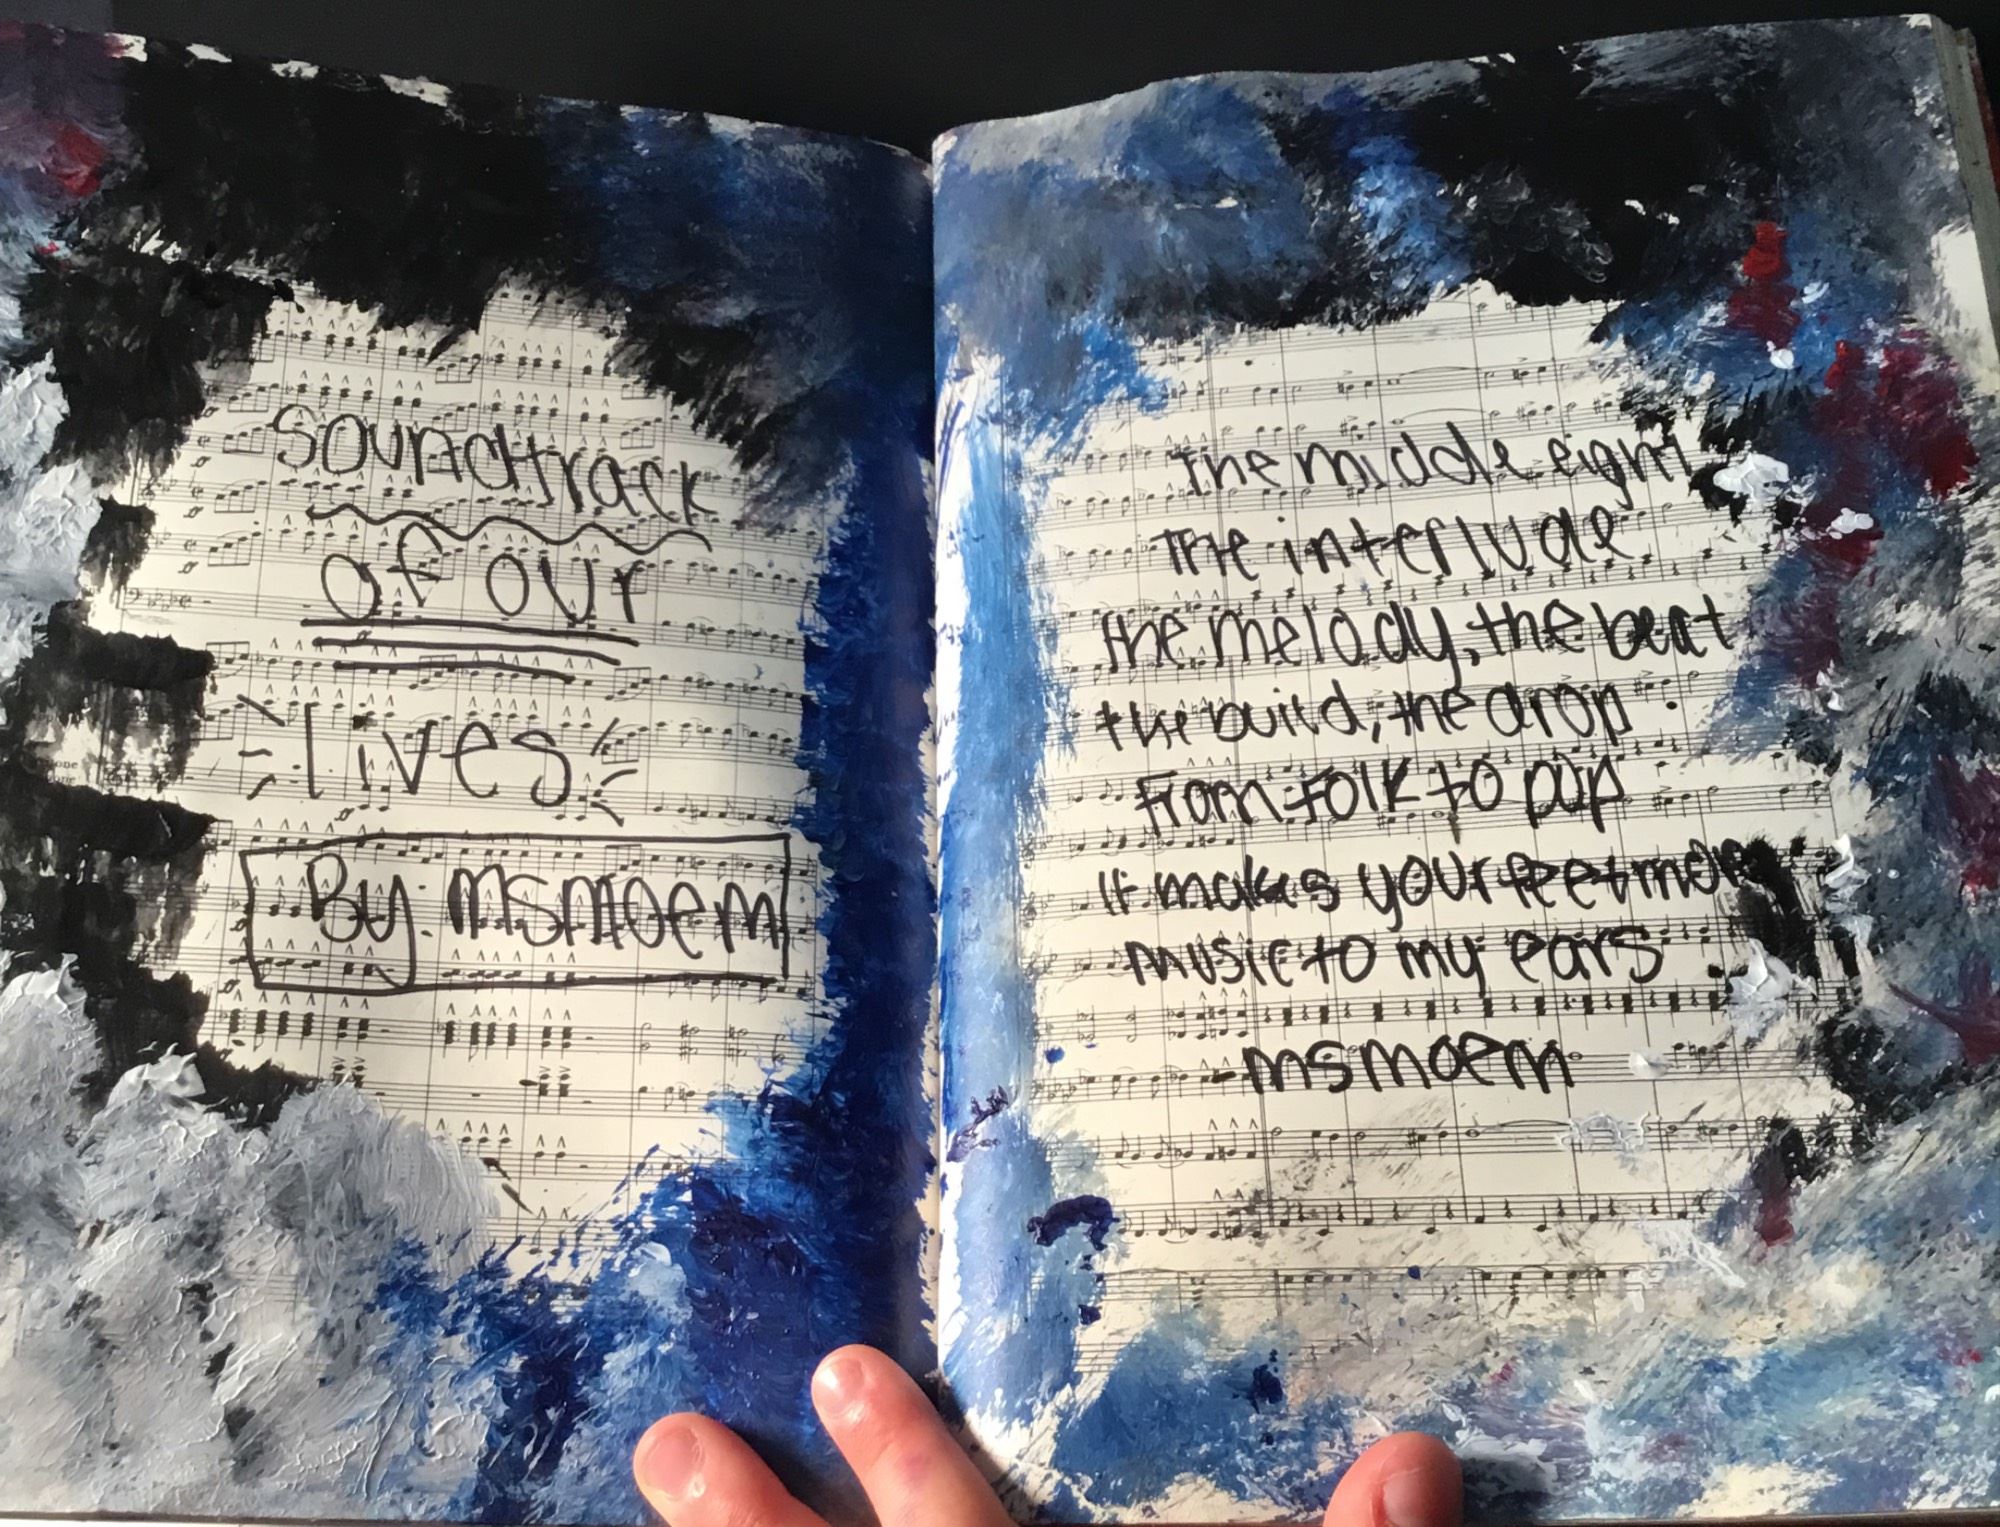 soundtrack
of our
lives
By: msmoem
The middle eight
The interlude
the melody, the beat
the build, the drop
From Folk to pop
It makes your feet move
music to my ears
-msmoem